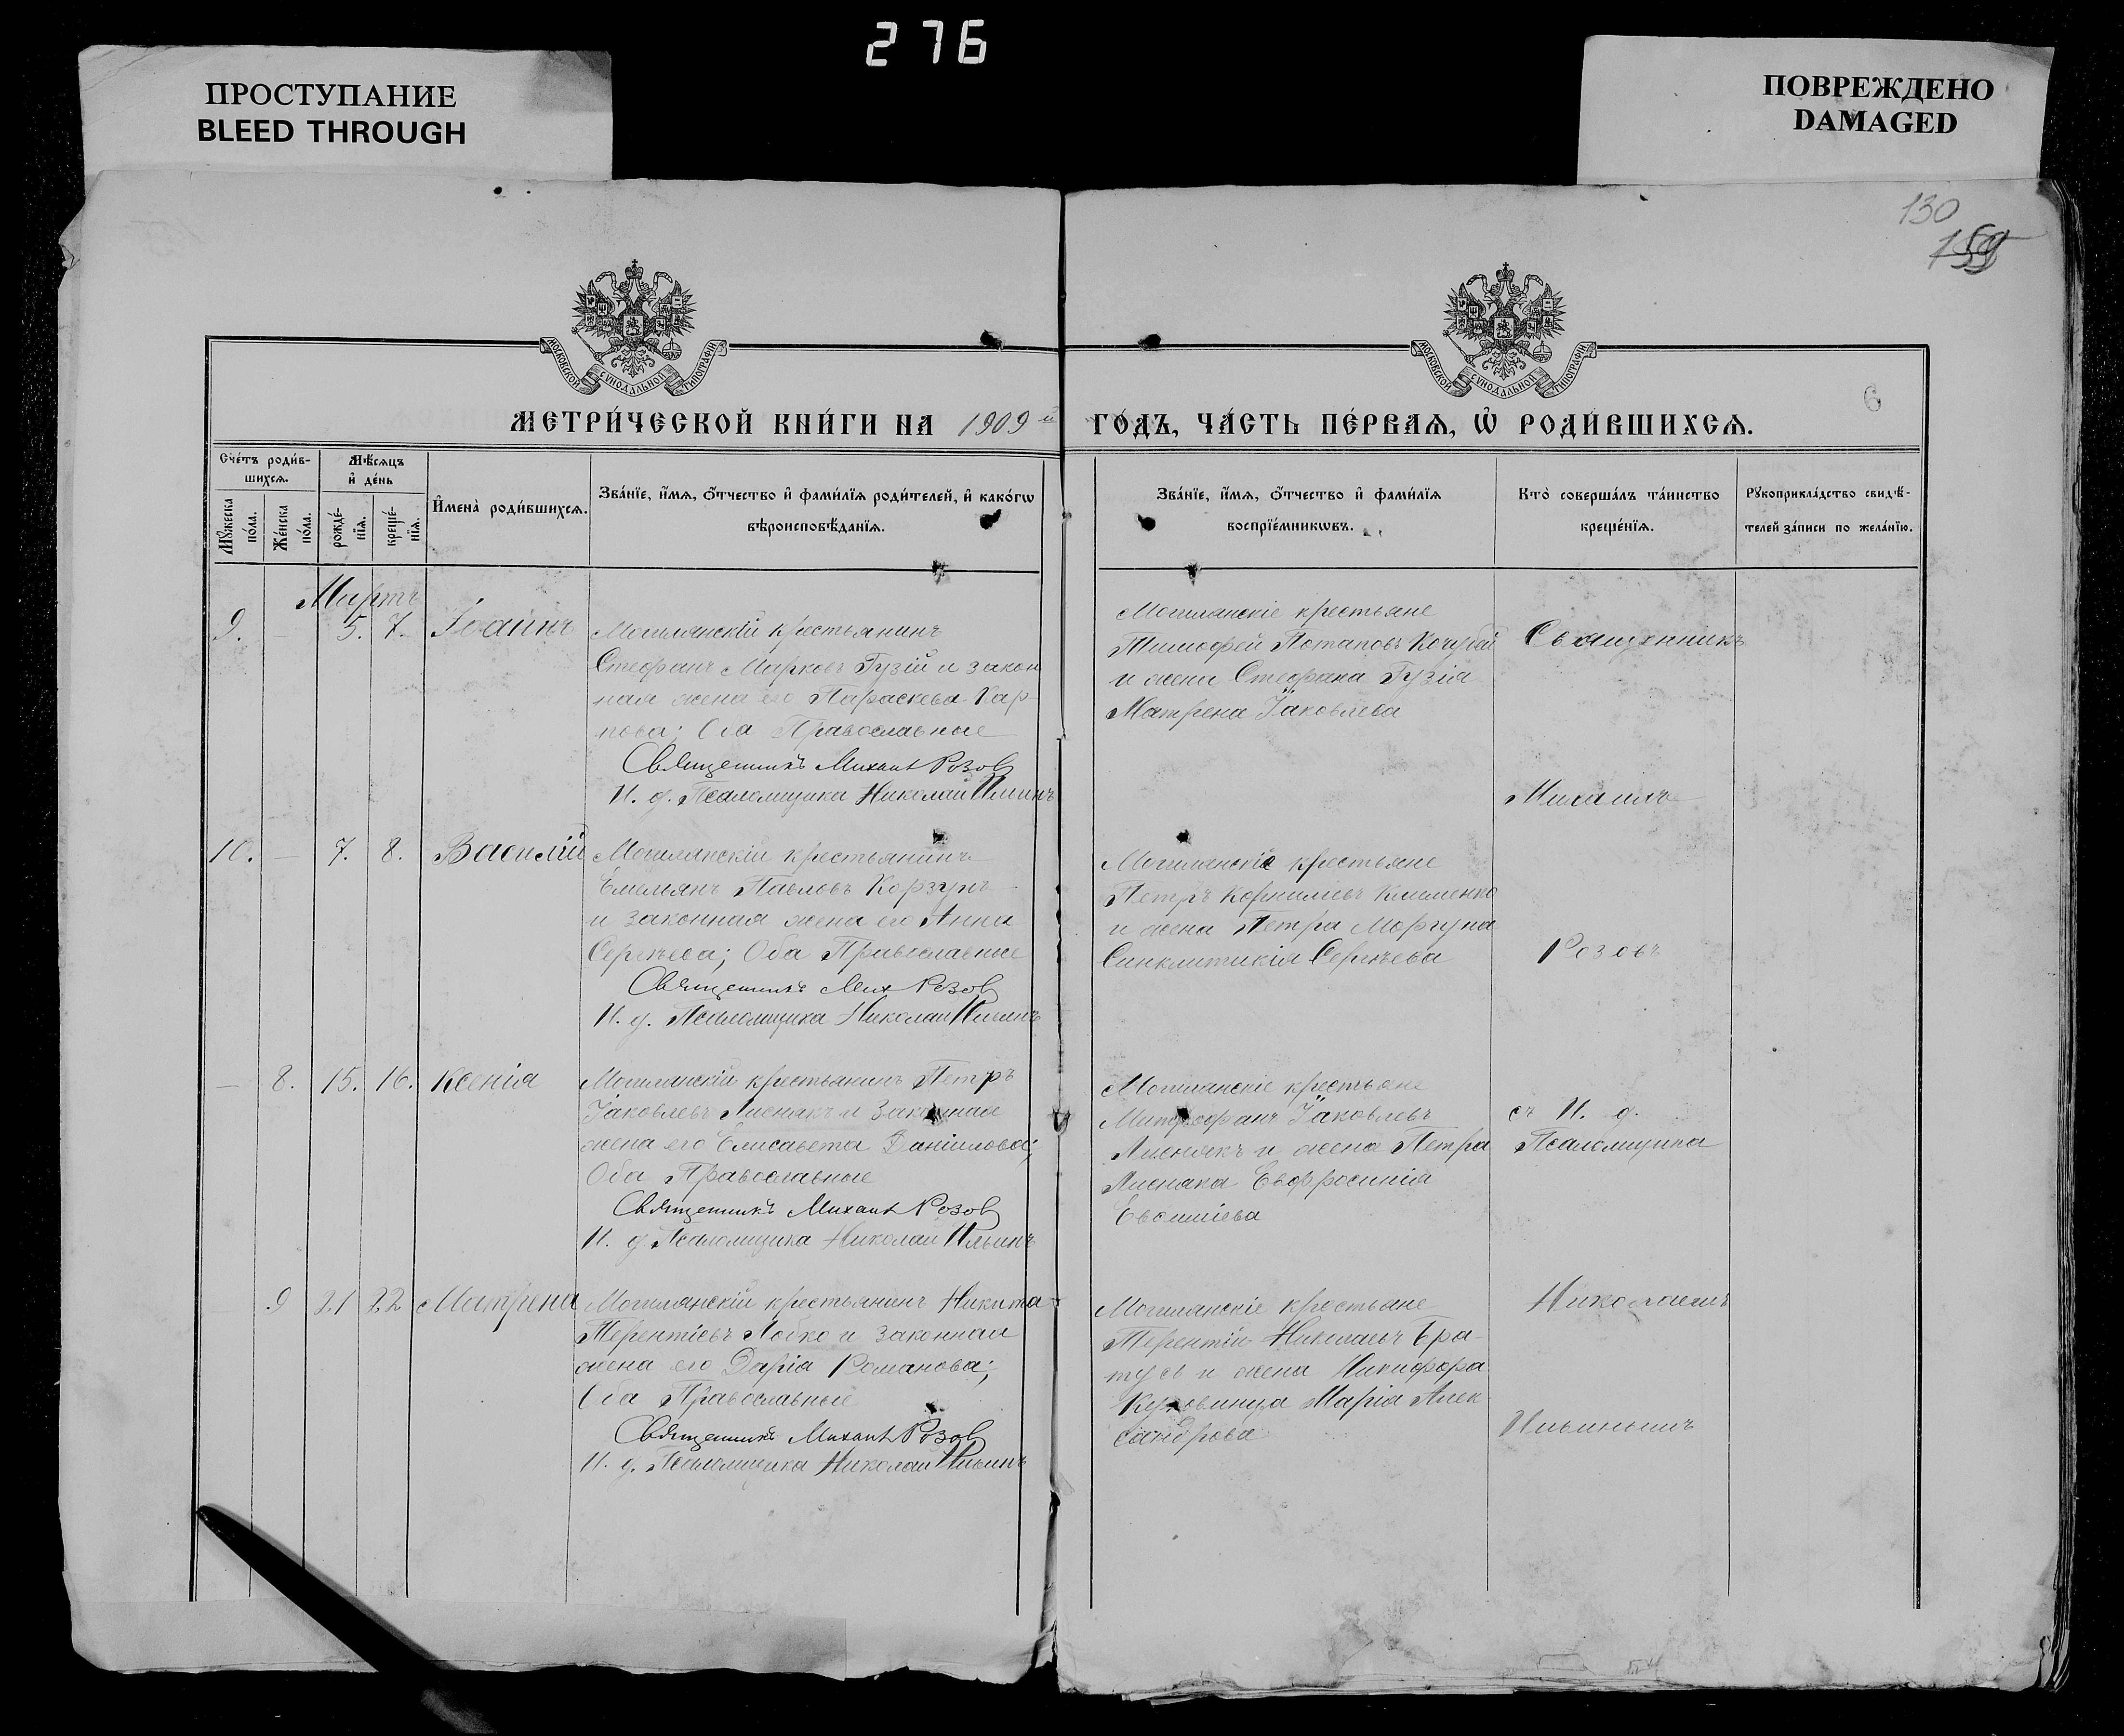 276
ПРОСТУПАНИЕ
BLEED THROUGH
ПОВРЕЖДЕНО
DAMAGED
130
159
6
МОСКОВСКОЙ СѴНОДАЛЬНОЙ ТИПОГРАФІИ
МОСКОВСКОЙ СѴНОДАЛЬНОЙ ТИПОГРАФІИ
МЕТРИ́ЧЕСКОЙ КНИ́ГИ НА 1909й ГО́ДЪ, ЧА́СТЬ ПЕ́РВАѦ, Ѡ҆ РОДИ́ВШИХСѦ.
Сче́тъ роди́в-
шихсѧ.
Мꙋжеска по́ла.
Же́нска по́ла.
Мѣ́сѧцъ
и҆ де́нь
рожде́-
нїѧ.
креще́-
нїѧ.
И҆мена̀ роди́вшихсѧ.
Зва́нїе, и҆́мѧ, ѻ҆́тчество и҆ фами́лїѧ роди́телей, и҆ како́гѡ
вѣроисповѣ́данїѧ.
Зва́нїе, и҆́мѧ, ѻ҆́тчество и҆ фами́лїѧ
воспрїе́мникѡвъ.
Кто̀ соверша́лъ та́инство
креще́нїѧ.
Рꙋкоприкла́дство свидѣ́-
телей за́писи по жела́нїю.
Мартъ
9. — 5. 7. Іоаннъ
Могилянскій крестьянинъ
Стефанъ Марковъ Гузій и закон
ная жена его Параскева Кар-
пова; Оба Православные
Священникъ Михаил Розов
И. д. Псаломщика Николай Ильинъ
Могилянскіе крестьяне
Тимофей Потаповъ Кочубей
и жена Стефана Гузія
Матрена Іаковлева
Священникъ
Михаилъ
10. — 7. 8. Василій
Могилянскій крестьянинъ
Емельянъ Павловъ Корзунъ
и законная жена его Анна
Сергѣева; Оба Православные
Священникъ Мих Розов
И. д. Псаломщика Николай Ильинъ
Могилянскіе крестьяне
Петръ Корниліевъ Клименко
и жена Петра Моргуна
Синклитикія Сергѣева
Розовъ
— 8. 15. 16. Ксенія
Могилянскій крестьянинъ Петръ
Іаковлевъ Лиснякъ и законная
жена его Елисавета Даніилова;
Оба Православные
Священникъ Михаил Розов
И. д Псаломщика Николай Ильинъ
Могилянскіе крестьяне
Митрофанъ Іаковлевъ
Лиснякъ и жена Петра
Лисняка Евфросинія
съ И. д.
Псаломщика
9 21 22 Матрена
Могилянскій крестьянинъ Никита
Терентіевъ Лобко и законная
жена его Дарія Романова;
Оба Православные
Священникъ Михаил Розов
И. д. Псаломщика Николай Ильинъ
Могилянскіе крестьяне
Терентій Бра-
тусь и жена Никифора
Марія Алек
сандрова
Николаемъ
Ильинымъ